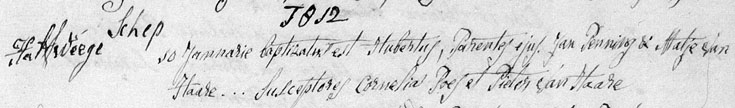 1812
Schep
so Jannuarie baptizatus est Hubertus, Parentes ejus. Jan Penning & Matje van
Haare... Susceptores Cornelia Poes et Pieter van Haare